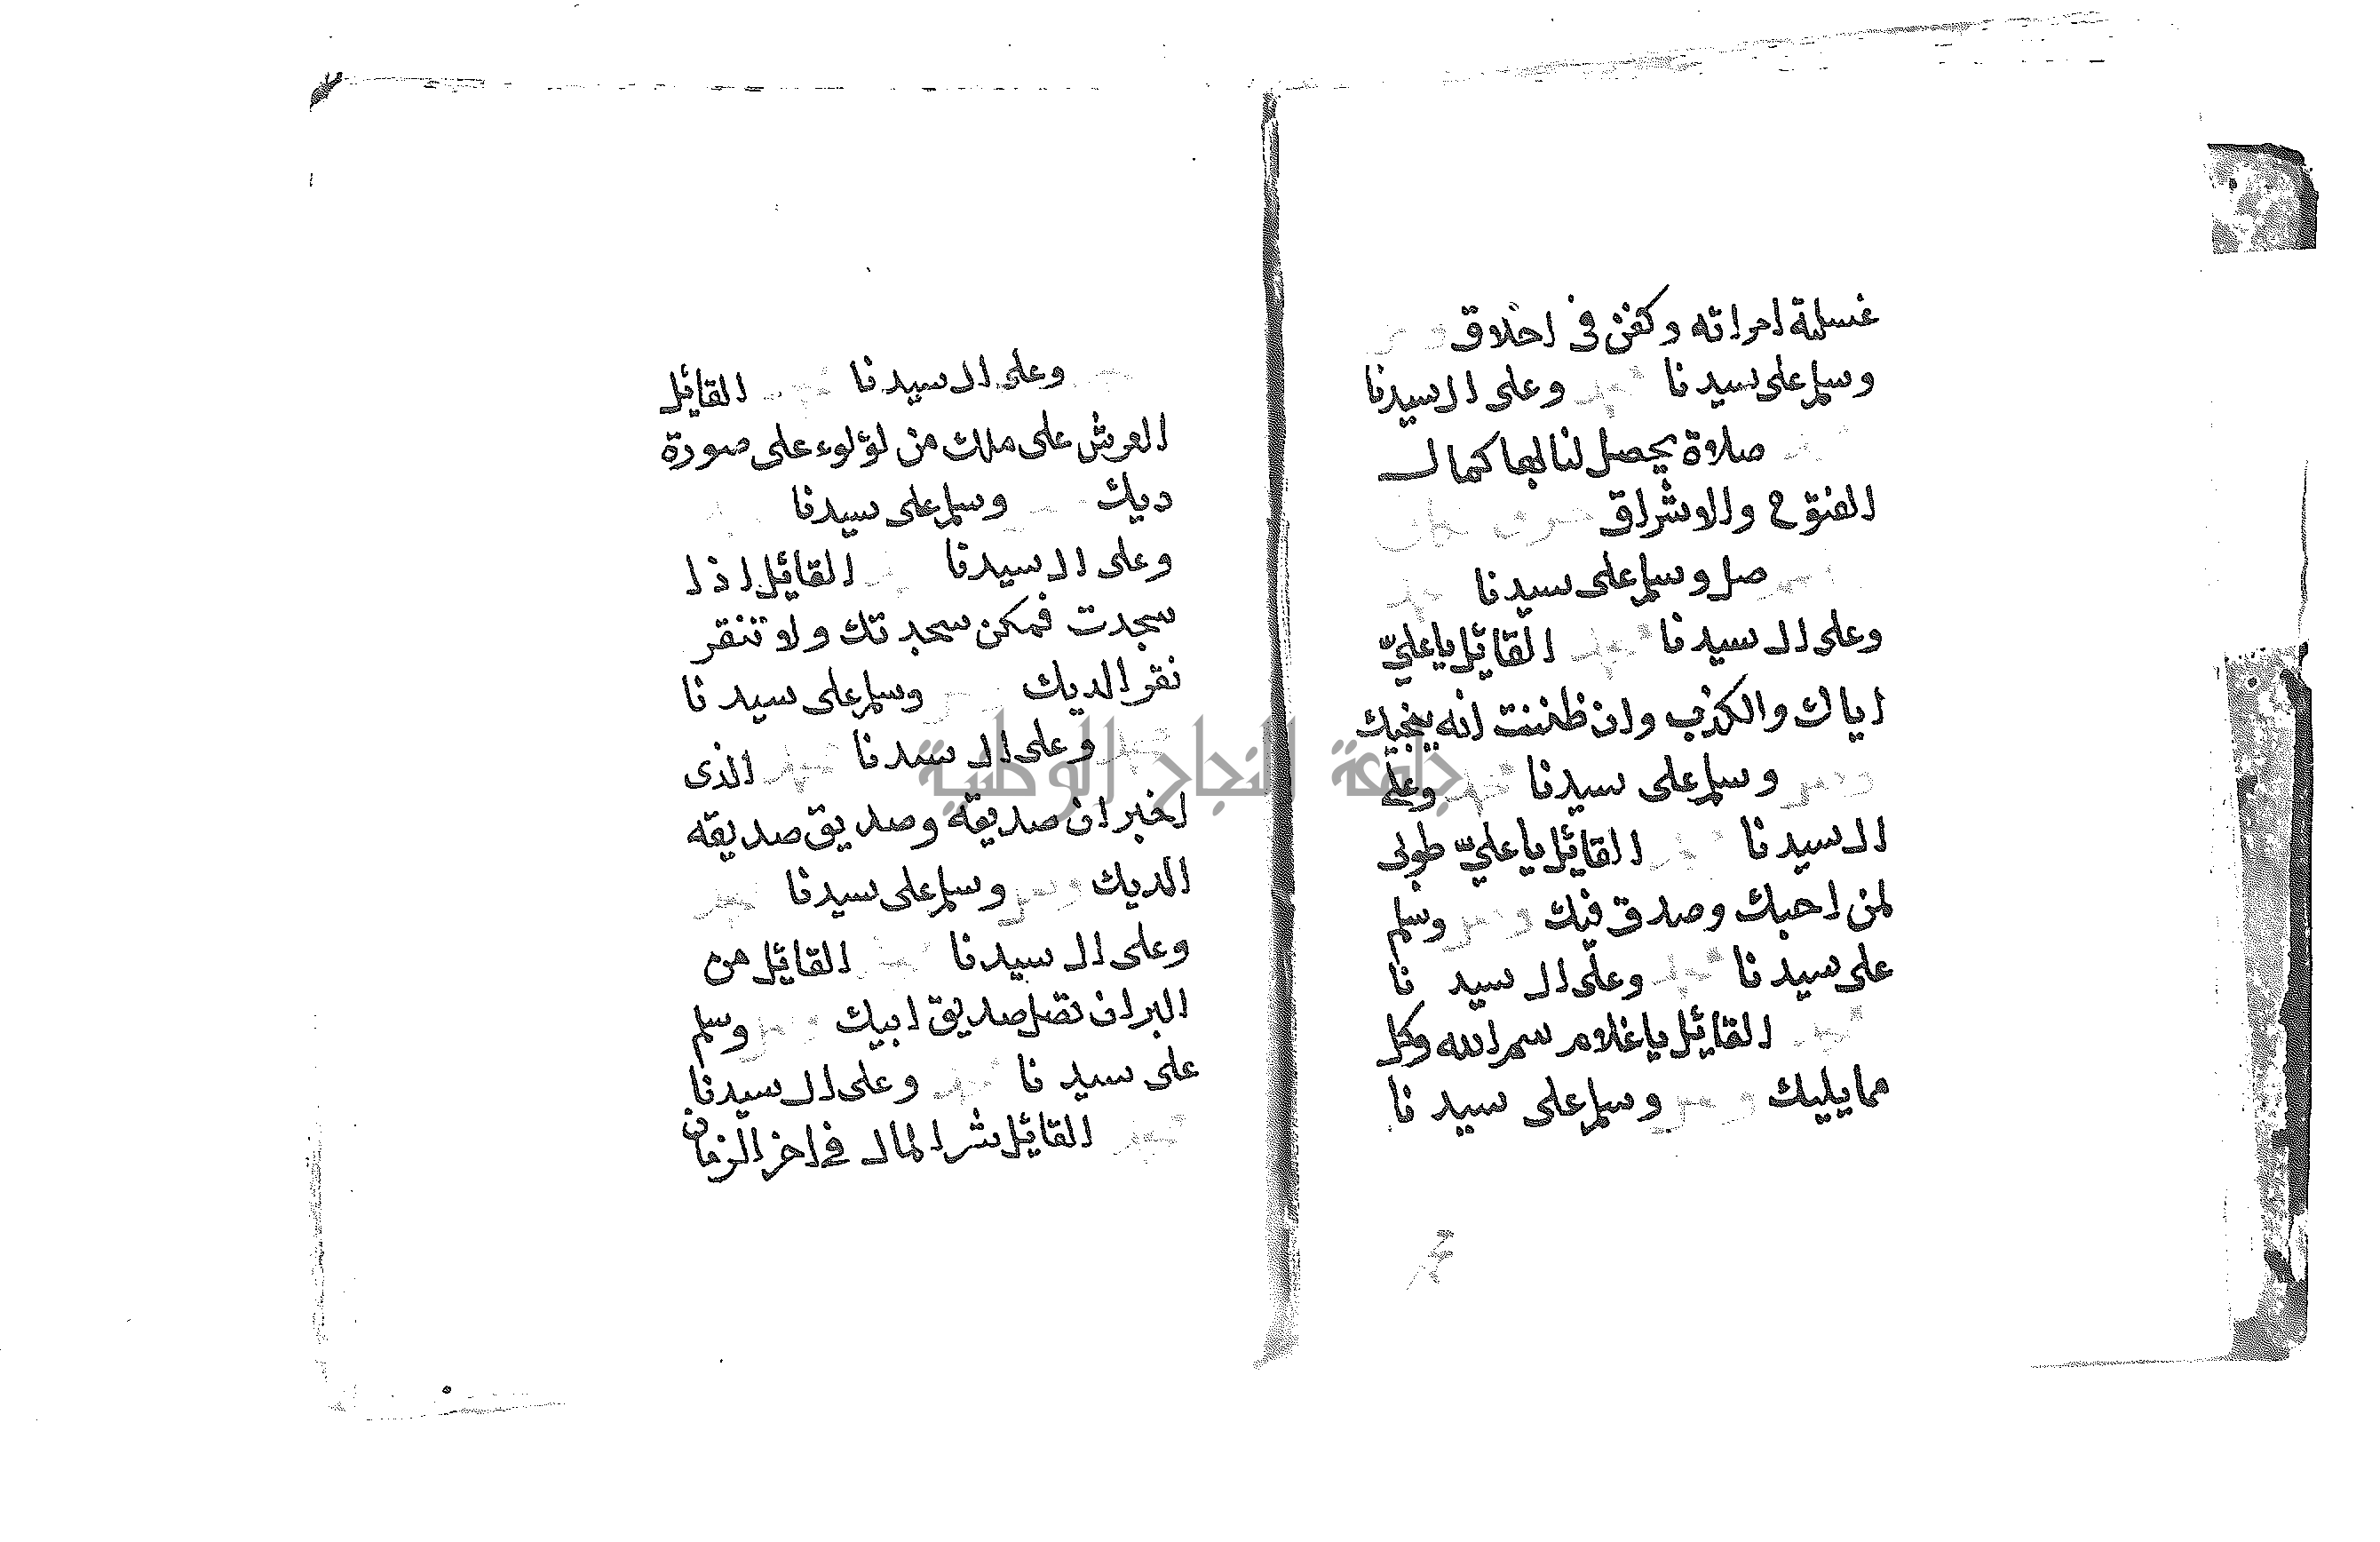 غسلته امراته وكفن فى اخلاق
وسلم على سيدنا محمد وعلى ال سيدنا
صلاة يحصل لنا بها كمال
الفتوح والاشراق
صل وسلم على سيدنا محمد
وعلى ال سيدنا محمد القائل يا عليّ
اياك والكذب وان ظننت انه ينجيك
وسلم على سيدنا محمد وعلى
ال سيدنا القائل يا عليّ طوبى
لمن احبك وصدق فيك وسلم
على سيدنا محمد وعلى ال سيد نا
محمد القائل يا غلام سم الله وكل
مما يليك وسلم على سيد نا
محمد
وعلى ال سيدنا محمد القائل
العرش على ملك من لؤلوء على صورة
ديك وسلم على سيدنا
وعلى ال سيدنا القائل اذا
سجدت فمكن سجدتك ولا تنقر
نقر الديك وسلم على سيدنا
محمد وعلى ال سيدنا محمد الذى
اخبر ان صديقه وصديق صديقه
الديك وسلم على سيدنا محمد
وعلى ال سيدنا محمد القائل من
البر ان تصل صديق ابيك وسلم
على سيد نا محمد وعلى ال سيدنا
محمد القائل شر المال فى اخر الزمان
جامعة النجاح الوطنية